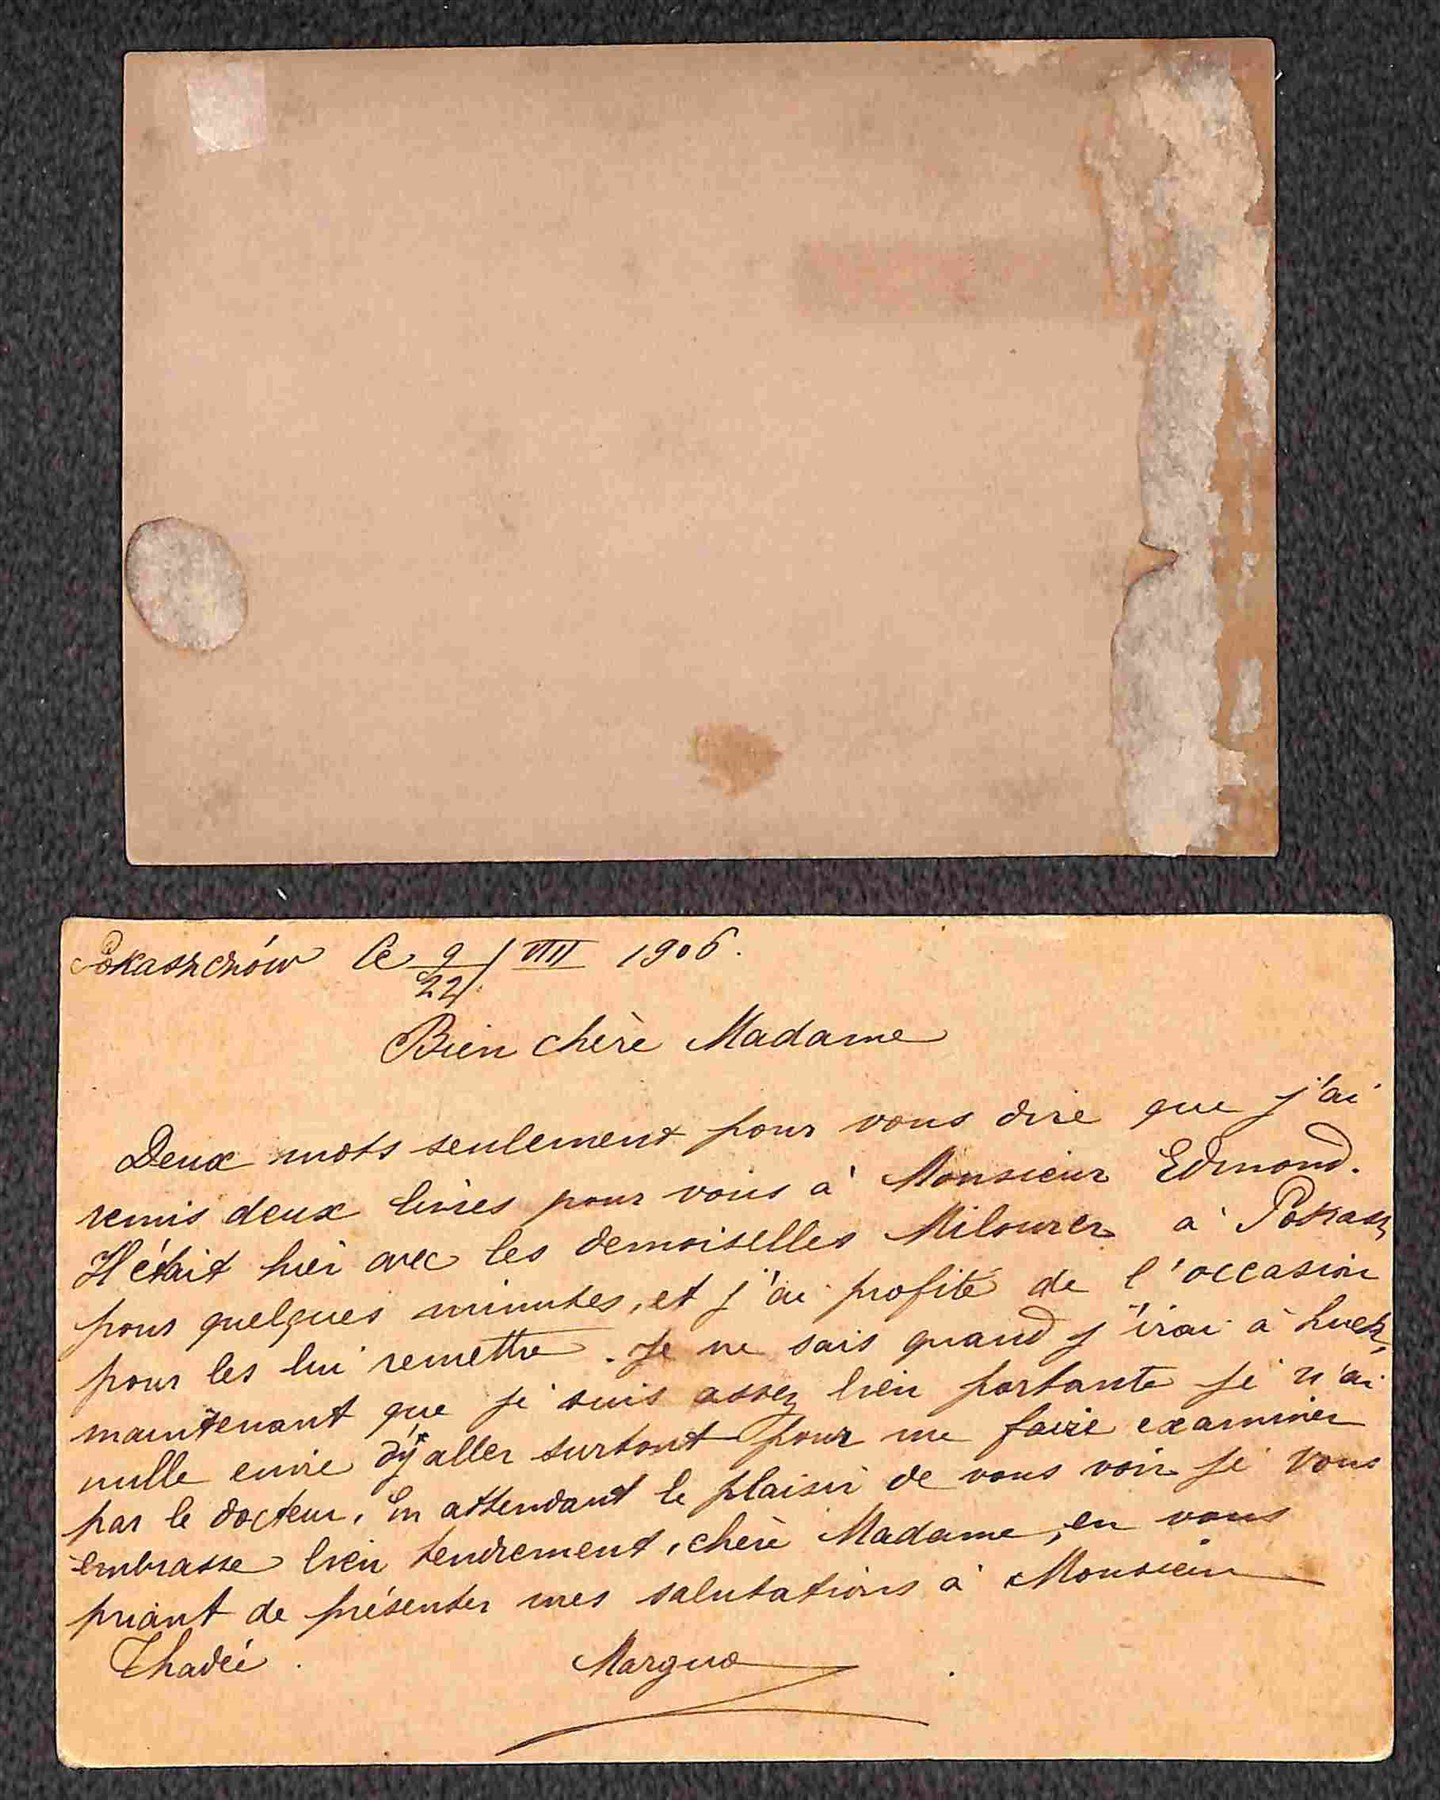 Pokaszczów Ce 9/22 VIII 1906.
Bien chère Madame
Deux mots seulement pour vous dire que j'ai
remis deux livres pour vous à Monsieur Edmond.
Il était hier avec les demoiselles à Pokasz
pour quelques minutes, et j'ai profité de l'occasion
pour les lui remettre. Je ne sais quand j'irai à Łuck,
maintenant que je suis assez bien portante je n'ai
nulle envie d'y aller surtout pour me faire examiner
par le docteur. En attendant le plaisir de vous voir je vous
embrasse bien tendrement, chère Madame, en vous
priant de présenter mes salutations à Monsieur
Thadée. Margue